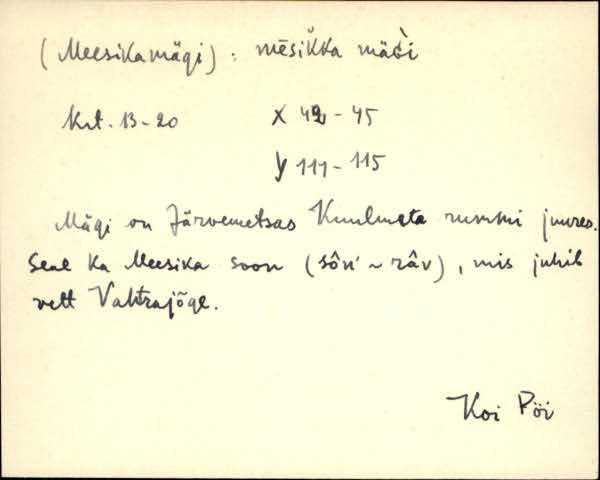 (Meesikamägi) : mēsik̆ka mäɢ̀i
Krt. 13-20 X 42-45
y 111-115
Mägi on Järvemetsas Kuulmata rummi juures.
Seal ka Meesika soon (sôn' ~ râv), mis juhib
vett Vahtrajõge.
Koi Pöi